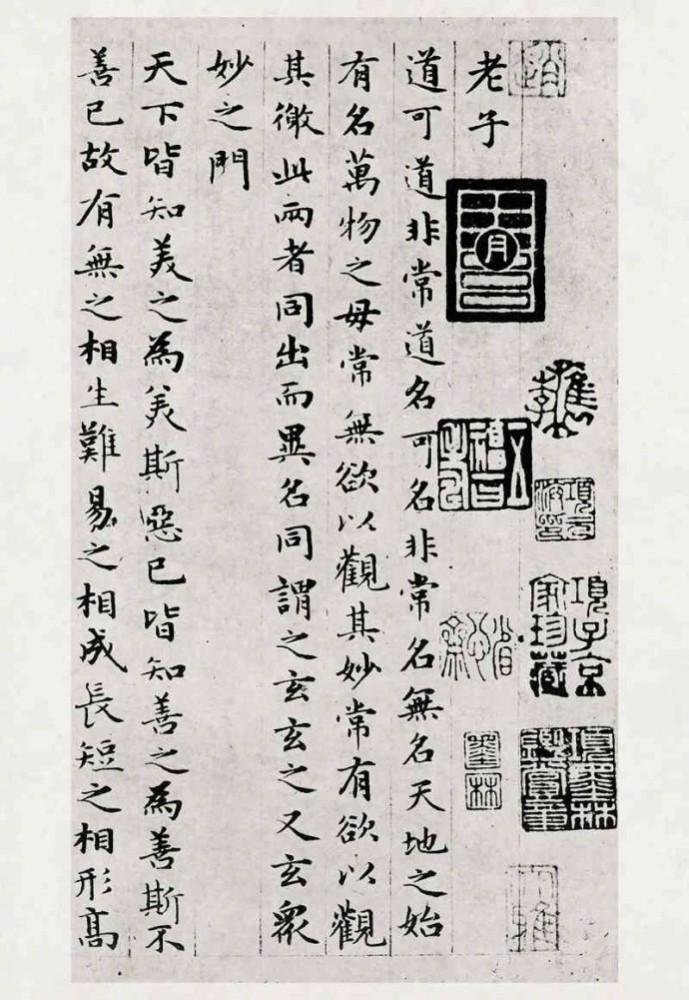 項子京家珍藏
項墨林鑑賞章
墨林
老子
道可道非常道名可名非常名無名天地之始
有名萬物之母常無欲以觀其妙常有欲以觀
其徼此兩者同出而異名同謂之玄玄之又玄眾
妙之門
天下皆知美之為美斯惡已皆知善之為善斯不
善已故有無之相生難易之相成長短之相形高